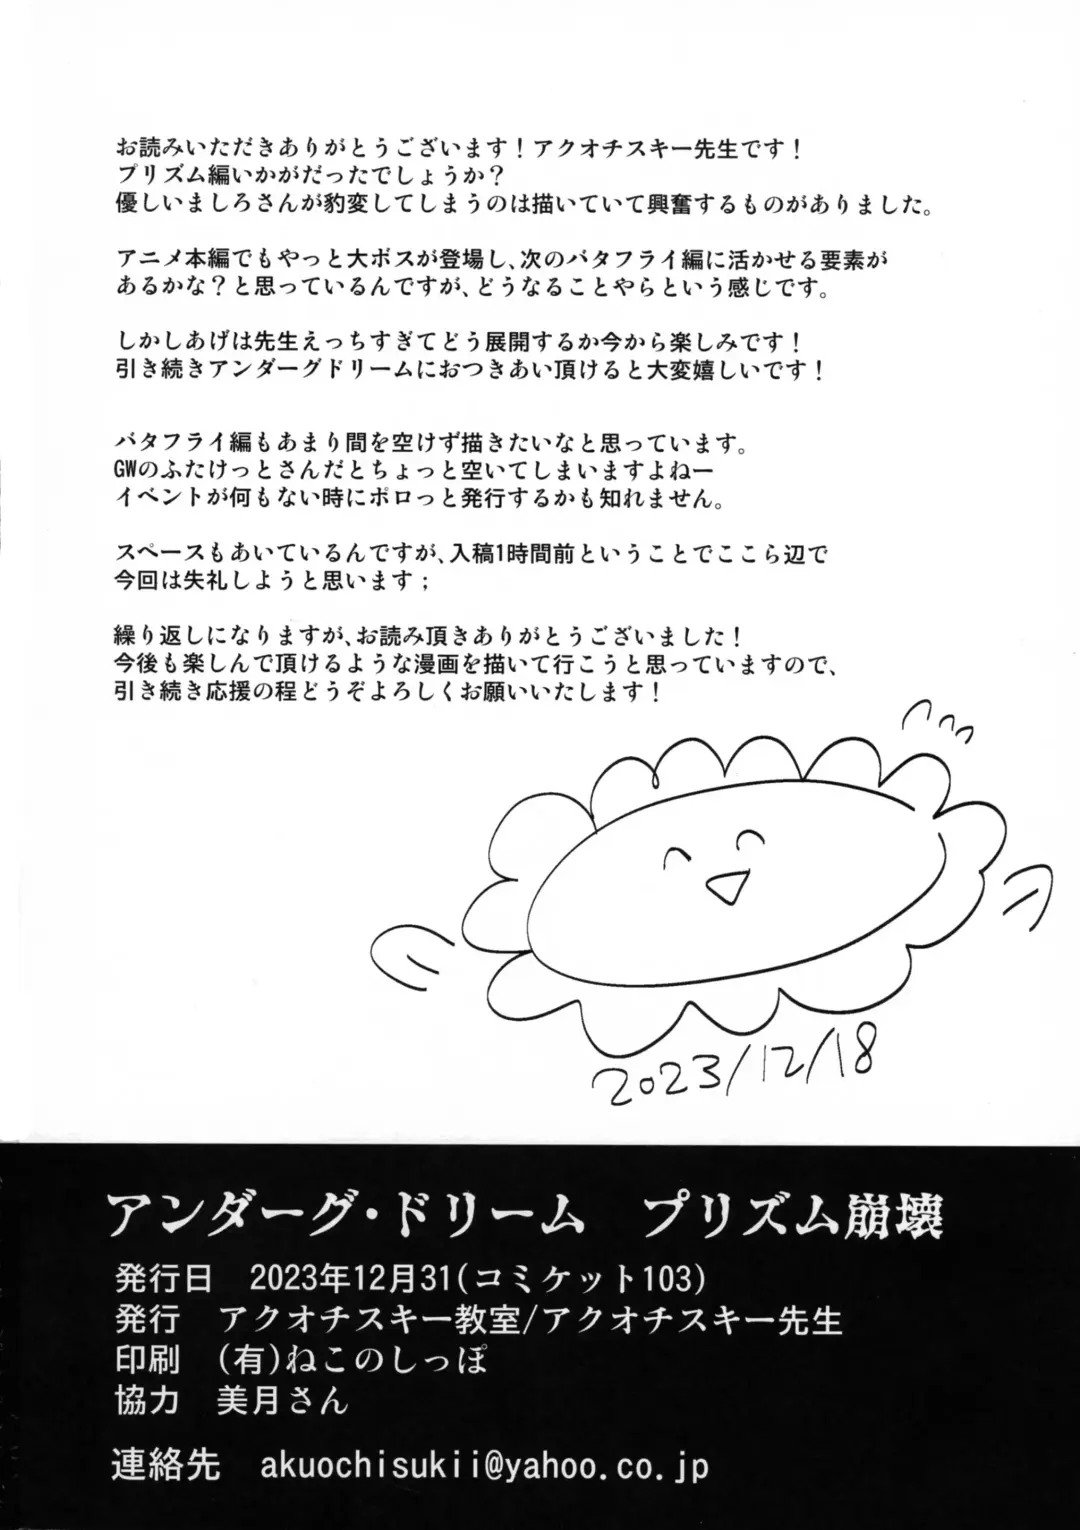 お読みいただきありがとうございます！アクオチスキー先生です！
プリズム編いかがだったでしょうか？
優しいましろさんが豹変してしまうのは描いていて興奮するものがありました。
アニメ本編でもやっと大ボスが登場し、次のバタフライ編に活かせる要素が
あるかな？と思っているんですが、どうなることやらという感じです。
しかしあげは先生えっちすぎてどう展開するか今から楽しみです！
引き続きアンダーグドリームにおつきあい頂けると大変嬉しいです！
バタフライ編もあまり間を空けず描きたいなと思っています。
GWのふたけっとさんだとちょっと空いてしまいますよねー
イベントが何もない時にポロっと発行するかも知れません。
スペースもあいているんですが、入稿1時間前ということでここら辺で
今回は失礼しようと思います；
繰り返しになりますが、お読み頂きありがとうございました！
今後も楽しんで頂けるような漫画を描いて行こうと思っていますので、
引き続き応援の程どうぞよろしくお願いいたします！
2023/12/18
アンダーグ・ドリーム　プリズム崩壊
発行日　2023年12月31(コミケット103)
発行　アクオチスキー教室/アクオチスキー先生
印刷　(有)ねこのしっぽ
協力　美月さん
連絡先　akuochisukii@yahoo.co.jp